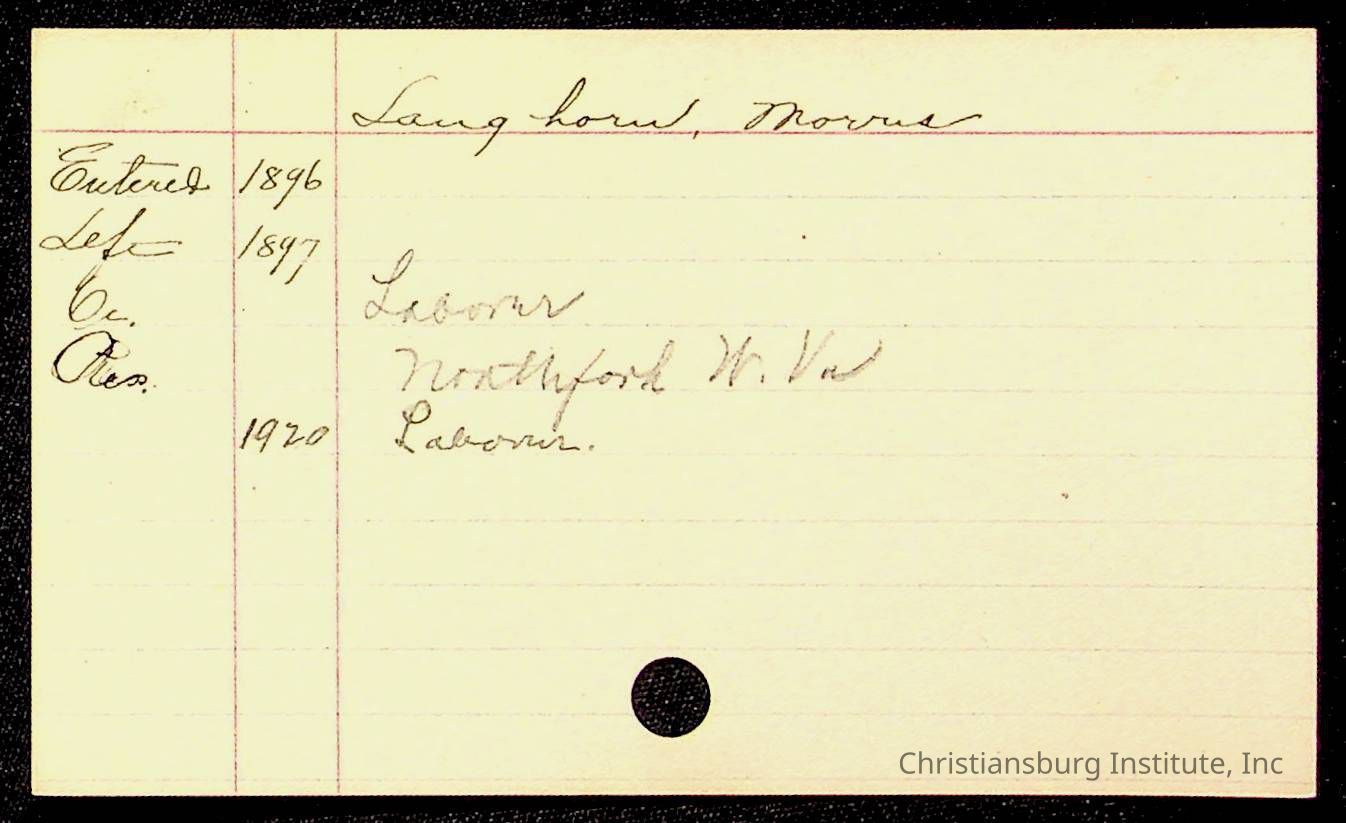 Langhorn, Morris
Entered 1896
Left 1897
Oc. Laborer
Res. Northfork W. Va
1920 Laborer.
Christiansburg Institute, Inc